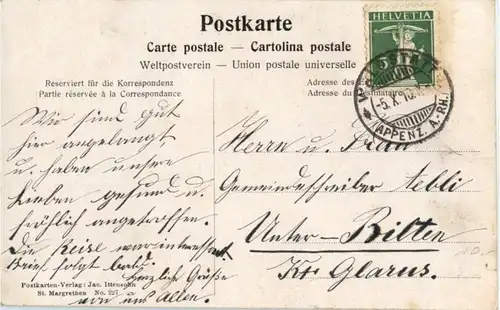 Postkarte
Carte postale — Cartolina postale
Weltpostverein — Union postale universelle
Reserviert für die Korrespondenz
Partie réservée à la Correspondance
Adresse des
Adresse du
HELVETIA
5
-5.X.10.
(APPENZ. A.-RH.)
Wir sind gut
hier angelangt
u. haben unsere
Lieben gesund u.
fröhlich angetroffen.
Die Reise war interessant.
Brief folgt bald.
Herzliche Grüße
von uns Allen.
Herrn u. Frau
Gemeindeschreiber Aebli
Unter-Bilten
Kt. Glarus.
Postkarten-Verlag: Jac. Ittensohn
St. Margrethen No. 227